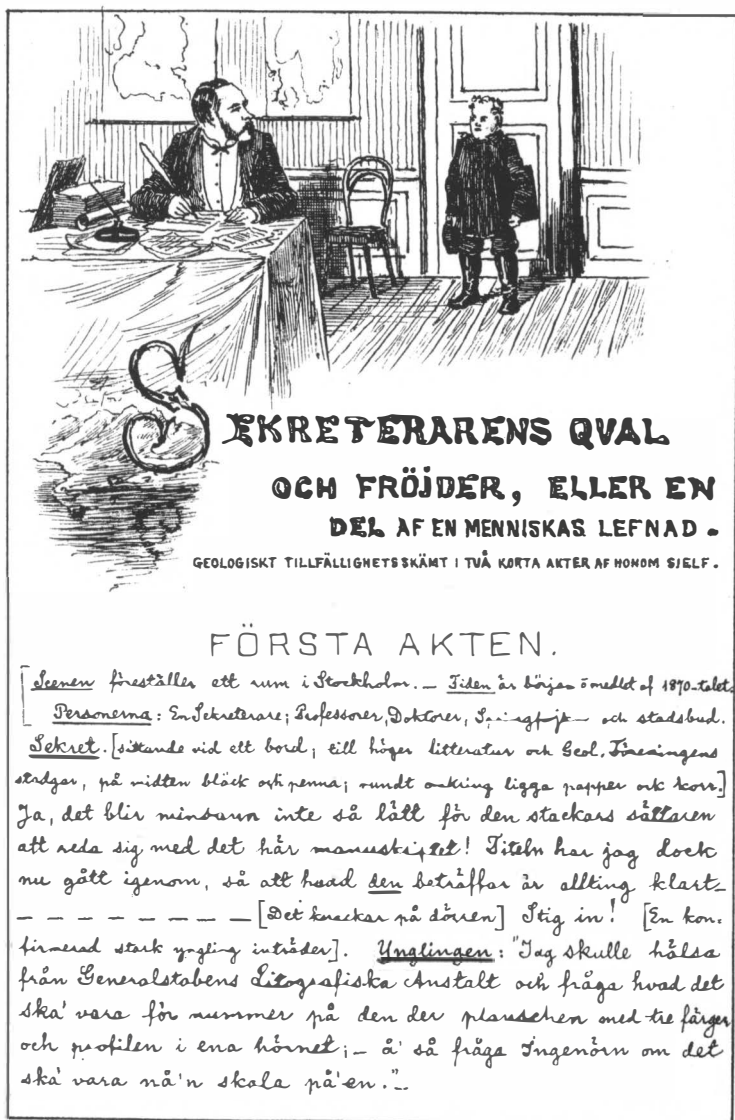 SEKRETERARENS QVAL
OCH FRÖJDER, ELLER EN
DEL AF EN MENNISKAS LEFNAD.
GEOLOGISKT TILLFÄLLIGHETSSKÄMT I TVÅ KORTA AKTER AF HONOM SJELF.
FÖRSTA AKTEN.
[Scenen föreställer ett rum i Stockholm. — Tiden är början o medlet af 1870-talet.
Personerna: En Sekreterare; Professorer, Doktorer, och stadsbud.
Sekret. [sittande vid ett bord; till höger litteratur och Geol. Föreningens
stadgar, på midten bläck och penna; rundt omkring ligga papper och korr.]
Ja, det blir minsann inte så lätt för den stackars sättaren
att reda sig med det här manuskriptet! Titeln har jag dock
nu gått igenom, så att hvad den beträffar är allting klart —
— — — — — — — — [Det knackar på dörren] Stig in! [En kon-
firmerad stark yngling inträder]. Ynglingen: "Jag skulle hälsa
från Generalstabens Litografiska Anstalt och fråga hvad det
ska' vara för nummer på den der planschen med tre färger
och profilen i ena hörnet; — å' så fråga Ingenörn om det
ska' vara nå'n skala på'en." —